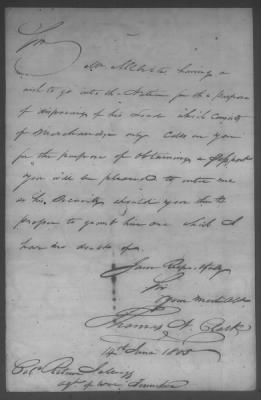 Sir
Mr. having a
wish to go into the Nation for the purpose
of disposing of his Load which consists
of Merchandize only calls on you
for the purpose of obtaining a Passport
you will be pleased to enter me
as his Security should you think
proper to grant him one which I
have no doubt of
I am Respectfully
Sir
your Most Obt
Thomas N. Clark
14th June 1805
Col.
agt of War